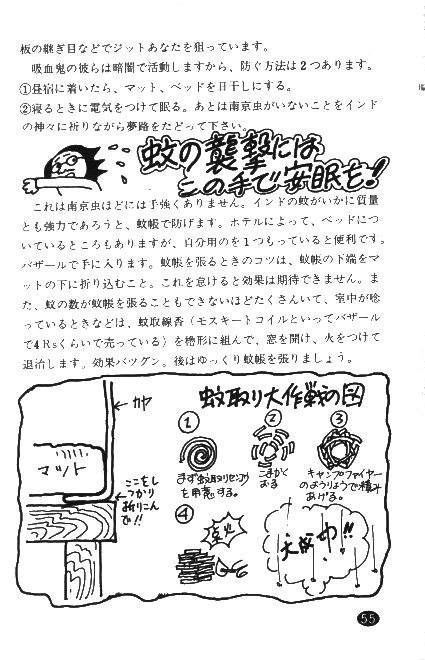 板の継ぎ目などでジットあなたを狙っています。
吸血鬼の彼らは暗闇で活動しますから、防ぐ方法は2つあります。
①昼宿に着いたら、マット、ベッドを日干しにする。
②寝るときに電気をつけて眠る。あとは南京虫がいないことをインド
の神々に祈りながら夢路をたどって下さい。
蚊の襲撃には
この手で安眠を!
これは南京虫ほどには手強くありません。インドの蚊がいかに質量
とも強力であろうと、蚊帳で防げます。ホテルによって、ベッドにつ
いているところもありますが、自分用のを1つもっていると便利です。
バザールで手に入ります。蚊帳を張るときのコツは、蚊帳の下端をマ
ットの下に折り込むこと。これを怠けると効果は期待できません。ま
た、蚊の数が蚊帳を張ることもできないほどたくさんいて、室中が唸
っているときなどは、蚊取線香(モスキートコイルといってバザール
で4Rsくらいで売っている)を櫓形に組んで、窓を開け、火をつけて
退治します。効果バツグン。後はゆっくり蚊帳を張りましょう。
蚊取り大作戦の図
カヤ
マット
ここをし
っかり
折りこん
で!!
①
まず蚊取りセンコウ
を用意する。
②
こまかく
おる
③
キャンプファイヤー
のようりょうで積み
あげる。
④
点火
大成功!!
55